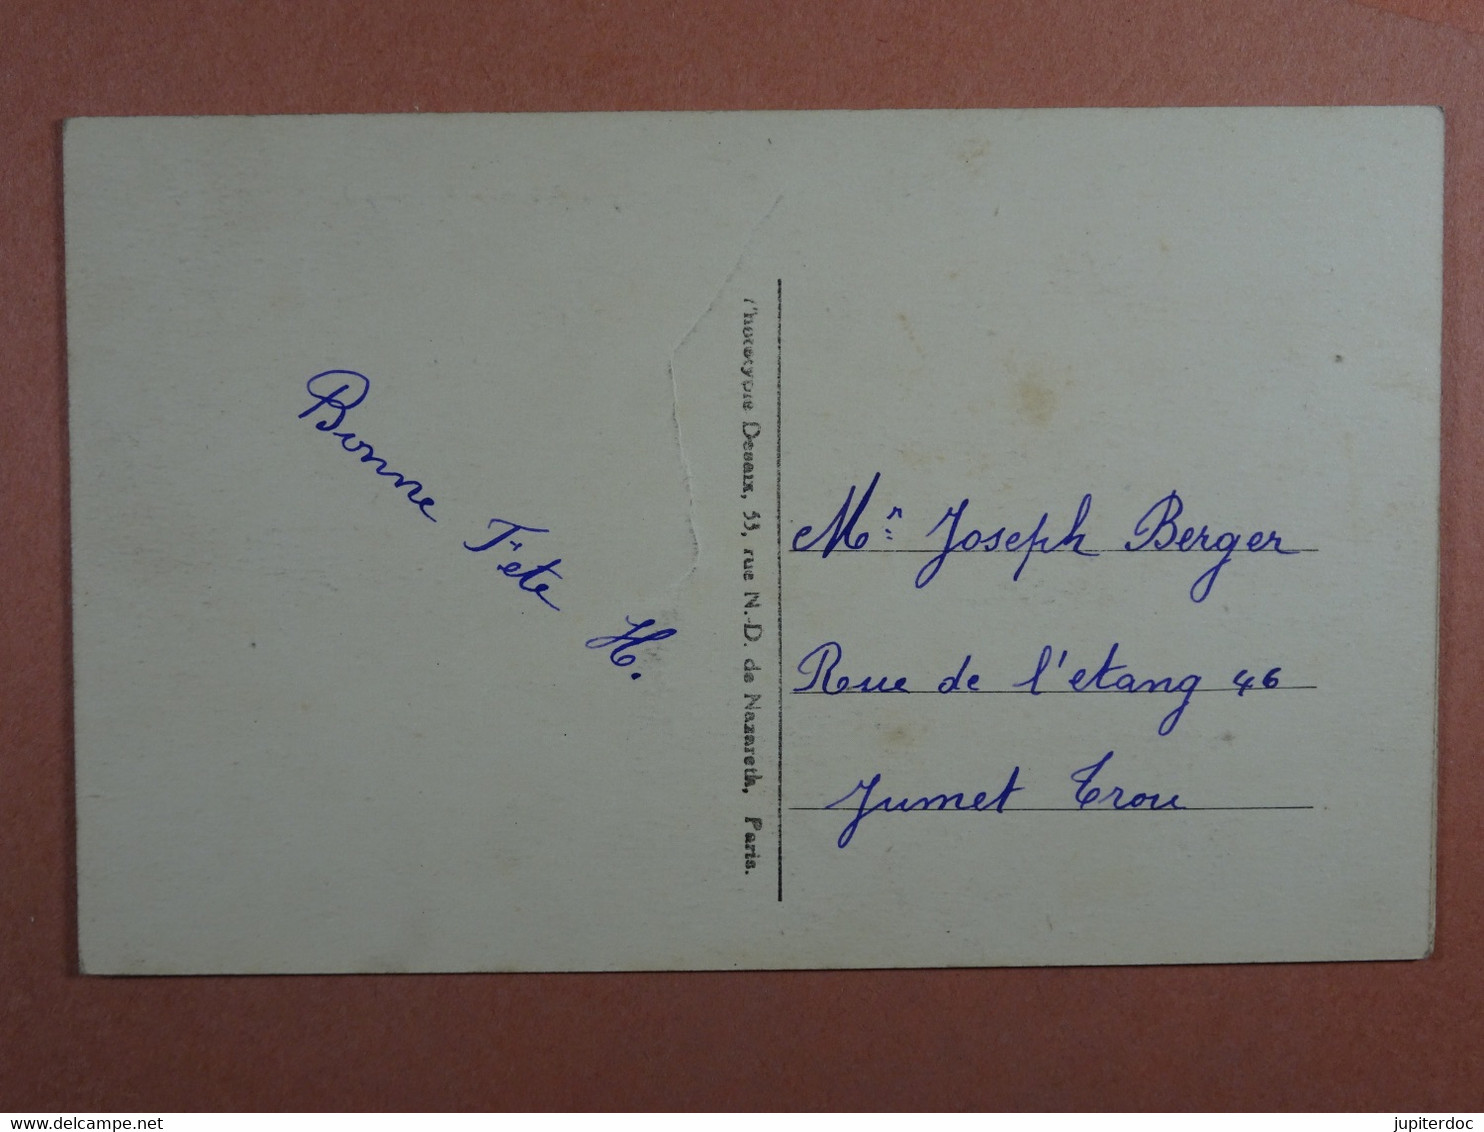 Bonne Fête H.
Phototypie Desaix, 33, rue N.-D. de Nazareth, Paris.
Mr Joseph Berger
Rue de l'etang 46
Jumet Trou
delcampe.net
jupiterdoc